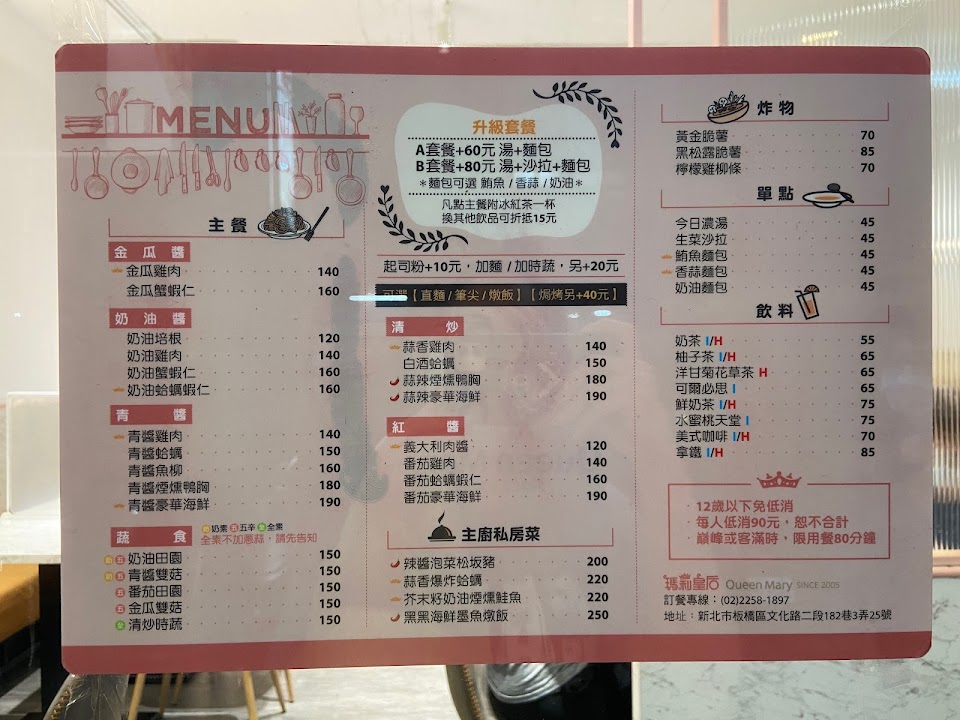 MENU
主餐
金瓜醬
金瓜雞肉 140
金瓜蟹蝦仁 160
奶油醬
奶油培根 120
奶油雞肉 140
奶油蟹蝦仁 160
奶油蛤蠣蝦仁 160
青醬
青醬雞肉 140
青醬蛤蠣 150
青醬魚柳 160
青醬煙燻鴨胸 180
青醬豪華海鮮 190
蔬食
奶 奶素 五 五辛 全 全素
全素不加蔥蒜，請先告知
奶 五 奶油田園 150
奶 五 青醬雙菇 150
五 番茄田園 150
五 金瓜雙菇 150
全 清炒時蔬 150
升級套餐
A套餐+60元 湯+麵包
B套餐+80元 湯+沙拉+麵包
＊麵包可選 鮪魚 / 香蒜 / 奶油＊
凡點主餐附冰紅茶一杯
換其他飲品可折抵15元
起司粉+10元，加麵 / 加時蔬，另+20元
可選【 直麵 / 筆尖 / 燉飯 】【 焗烤另+40元 】
清炒
蒜香雞肉 140
白酒蛤蠣 150
蒜辣煙燻鴨胸 180
蒜辣豪華海鮮 190
紅醬
義大利肉醬 120
番茄雞肉 140
番茄蛤蠣蝦仁 160
番茄豪華海鮮 190
主廚私房菜
辣醬泡菜松坂豬 200
蒜香爆炸蛤蠣 220
芥末籽奶油煙燻鮭魚 220
黑黑海鮮墨魚燉飯 250
炸物
黃金脆薯 70
黑松露脆薯 85
檸檬雞柳條 70
單點
今日濃湯 45
生菜沙拉 45
鮪魚麵包 45
香蒜麵包 45
奶油麵包 45
飲料
奶茶 I/H 55
柚子茶 I/H 65
洋甘菊花草茶 H 65
可爾必思 I 65
鮮奶茶 I/H 75
水蜜桃天堂 I 75
美式咖啡 I/H 70
拿鐵 I/H 85
· 12歲以下免低消
· 每人低消90元，恕不合計
· 巔峰或客滿時，限用餐80分鐘
瑪莉皇后 Queen Mary SINCE 2005
訂餐專線：(02)2258-1897
地址：新北市板橋區文化路二段182巷3弄25號